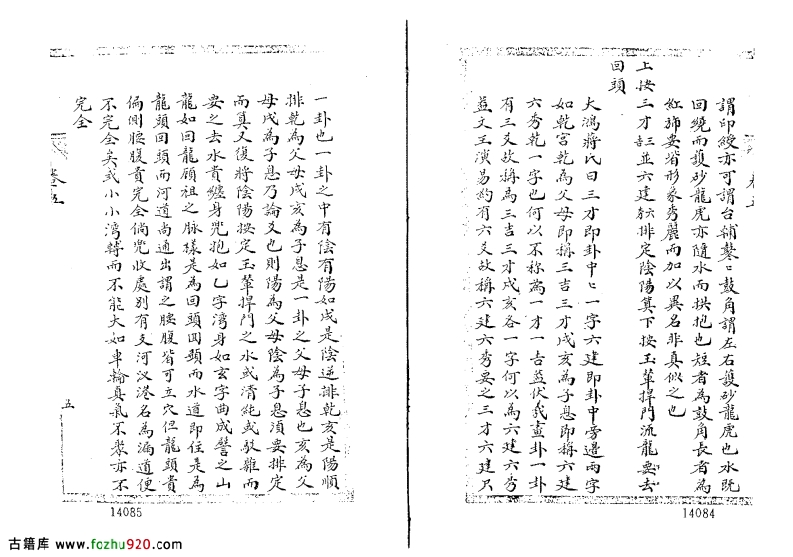 謂印綬亦可謂台輔鼕〻鼓角謂左右護砂龍虎也水既
回繞而護砂龍虎亦隨水而拱抱也短者為鼓角長者為
紅旆要皆形象秀麗而加以異名非真似之也
上按三才並六建排定陰陽算下按玉輦捍門流龍要去
回頭
大鴻蔣氏曰三才即卦中〻一字六建即卦中旁邊兩字
如乾宮乾為父母即稱三吉三才戌亥為子息即稱六建
六秀乾一字也何以不称為一才一吉蓋伏羲畫卦一卦
有三爻故稱為三吉三才戌亥各一字何以為六建六秀
蓋文王演易約有六爻故稱六建六秀要之三才六建只
14084
一卦也一卦之中有陰有陽如戌是陰逆排乾亥是陽順
排乾為父母戌亥為子息是一卦之父母子息也亥為父
母戌為子息乃論爻也則陽為父母陰為子息須要排定
而算又復將陰陽按定玉輦捍門之水或清純或駁雜而
要之去水貴纏身兜抱如乙字灣身如玄字曲成譬之山
龍如回龍顧祖之脉樣是為回頭回顧而水道即住是為
龍頭回頭而河道尚通出謂之腰腹皆可立穴但龍頭貴
偏側腰腹貴完全倘兜收處別有支河汊港名為漏道便
不完全矣或小小灣轉而不能大如車輪真氣不聚亦不
完全
卷五
五
14085
古籍库 www.fozhu920.com